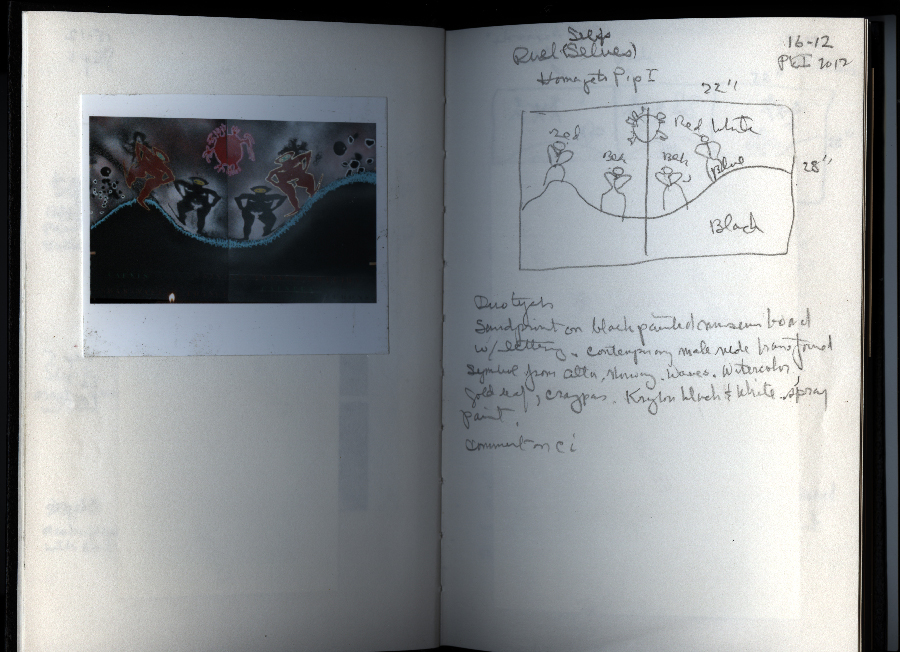 Selfs
Dual (Selves)
16-12
Homage to Pip I
2012
22"
Red
Red White
Blk
Blk
Blue
28"
Black
Sandprint on black painted museum board
w/ lettering. contemporary male nude transformed
Symbol from Alta, Norway. Waves. Watercolor,
gold leaf, craypas. Krylon black & white spray
paint.
Comment on